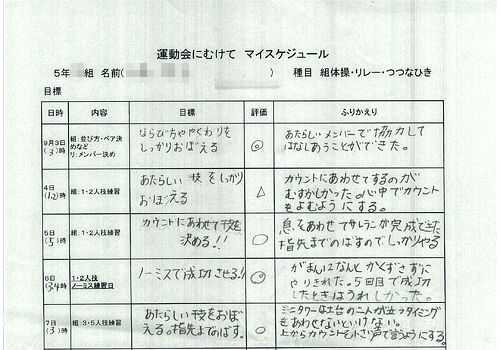 運動会にむけて マイスケジュール
5年 組 名前( ) 種目 組体操・リレー・つつなひき
目標
日時 内容 目標 評価 ふりかえり
9月3日
(3)時
組:並び方・ペア決
めなど
リ:メンバー決め
ならび方ややくわりを
しっかりおぼえる
◎
あたらしいメンバーで協力して
はなしあうことができた。
4日
組:1・2人技練習
あたらしい 技をしっかり
おぼえる
△
カウントにあわせてするのが
むずかしかった。心中でカウント
をよむようにする。
5日
(5)時
組:1・2人技練習
カウントにあわせて技を
決める!!
○
息をあわせてサボテンが完成できた
指先までのばすのでしっかりやる
6日
(3,4)時
1・2人技
ノーミス練習日
ノーミスで成功させる!!
◎
がまん なんとかくずさずに
やりきれた。5回目で成功
したときはうれしかった。
7日
(3)時
組:3・5人技練習
あたらしい技をおぼ
える。指先までのばす。
○
ミニタワーは土台の二人が立つタイミング
をあわせないといけない。
上からカウントを小さい声で言うようにする。